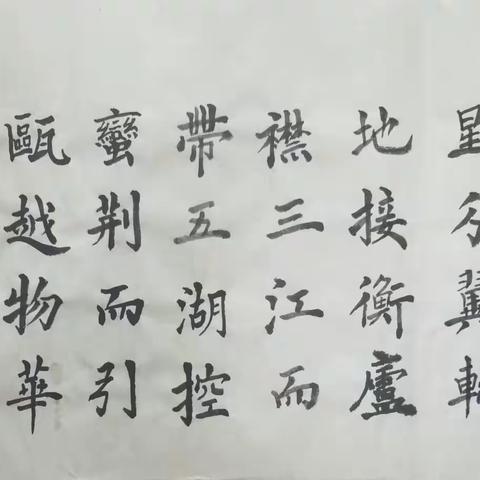 星分翼軫
地接衡廬
襟三江而
帶五湖控
蠻荆而引
甌越物華